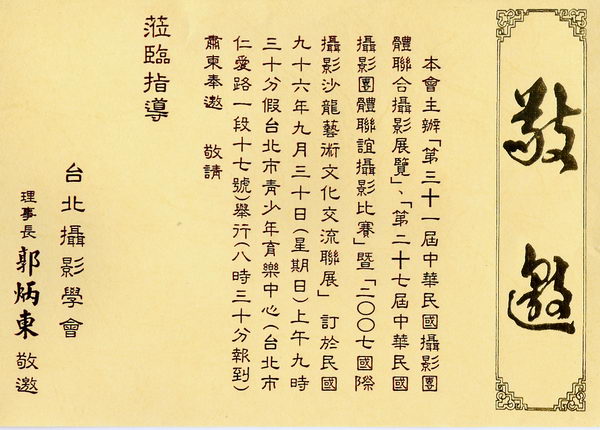 敬邀
本會主辦「第三十一屆中華民國攝影團
體聯合攝影展覽」、「第二十七屆中華民國
攝影團體聯誼攝影比賽」暨「二〇〇七國際
攝影沙龍藝術文化交流聯展」訂於民國
九十六年九月三十日(星期日)上午九時
三十分假台北市青少年育樂中心(台北市
仁愛路一段十七號)舉行(八時三十分報到)
肅柬奉邀 敬請
蒞臨指導
台北攝影學會
理事長 郭炳東 敬邀